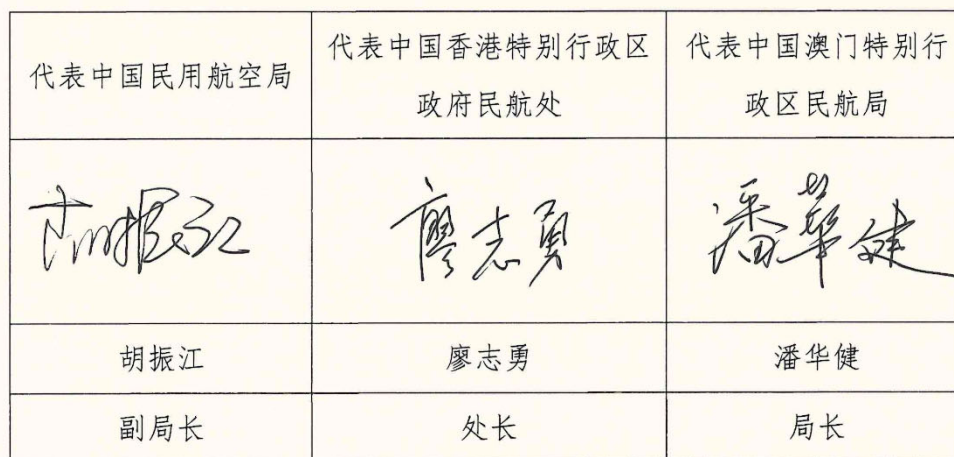 代表中国民用航空局
代表中国香港特别行政区
政府民航处
代表中国澳门特别行
政区民航局
胡振江
廖志勇
潘华健
胡振江
廖志勇
潘华健
副局长
处长
局长